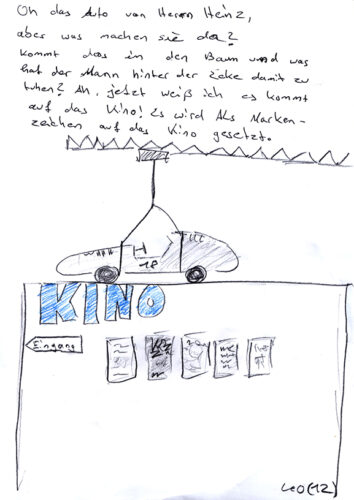 Oh das Auto von Herrn Heinz,
aber was machen sie da?
kommt das in den Baum und was
hat der Mann hinter der Ecke damit zu
tuhen? Ah, jetzt weiß ich es kommt
auf das Kino! Es wird Als Marken-
zeichen auf das Kino gesetzt.
18
KINO
Eingang
Leo (12)